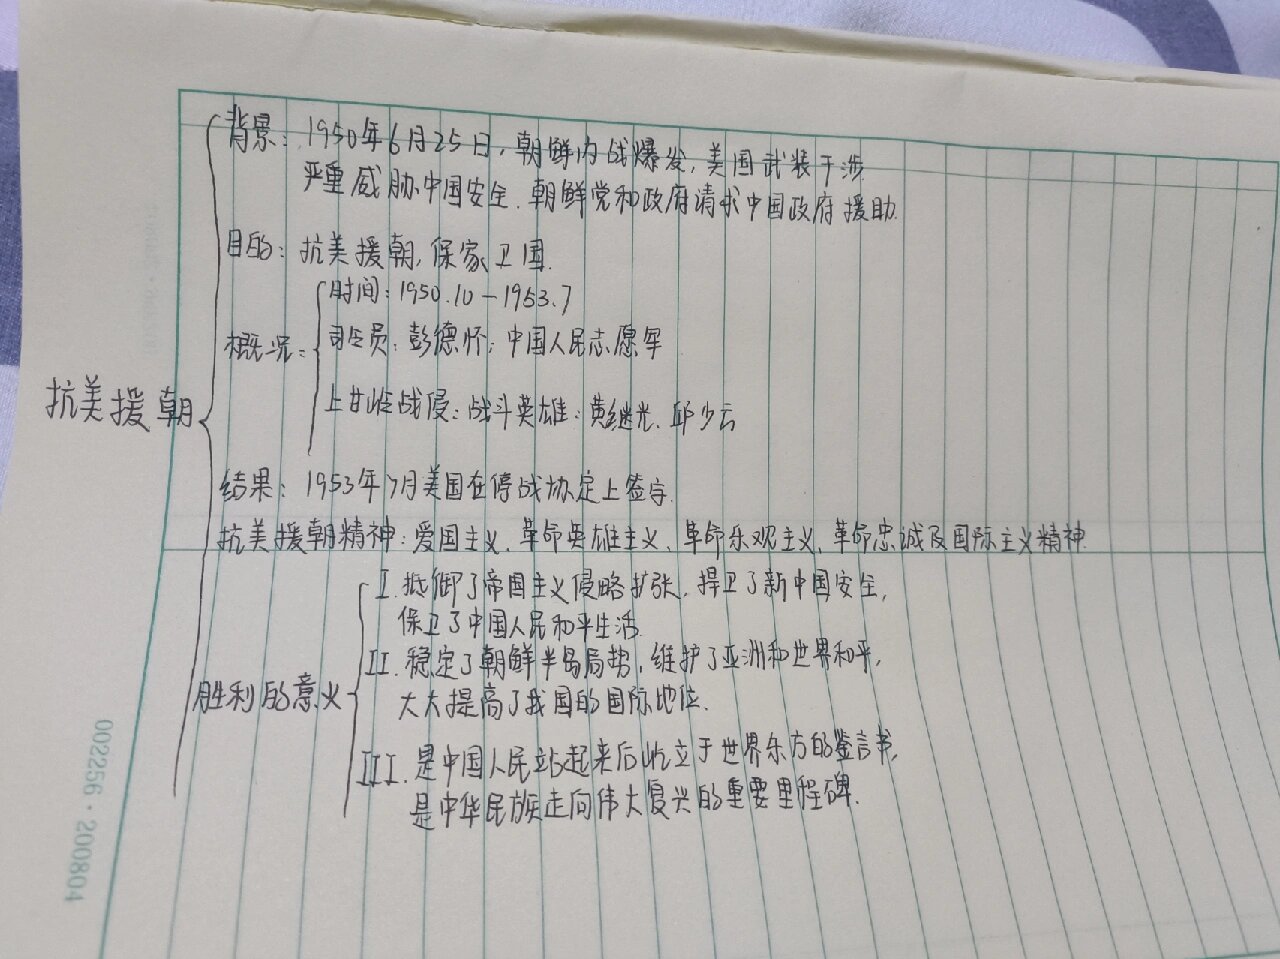 背景：1950年6月25日，朝鲜内战爆发，美国武装干涉
严重威胁中国安全．朝鲜党和政府请求中国政府援助．
目的：抗美援朝，保家卫国．
概况：
时间：1950.10－1953.7
司令员：彭德怀：中国人民志愿军
上甘岭战役：战斗英雄：黄继光、邱少云
抗美援朝
结果：1953年7月美国在停战协定上签字．
抗美援朝精神：爱国主义、革命英雄主义、革命乐观主义、革命忠诚及国际主义精神．
胜利的意义
I. 抵御了帝国主义侵略扩张，捍卫了新中国安全，
保卫了中国人民和平生活．
II. 稳定了朝鲜半岛局势，维护了亚洲和世界和平，
大大提高了我国的国际地位．
III. 是中国人民站起来后屹立于世界东方的宣言书，
是中华民族走向伟大复兴的重要里程碑．
002256·200804